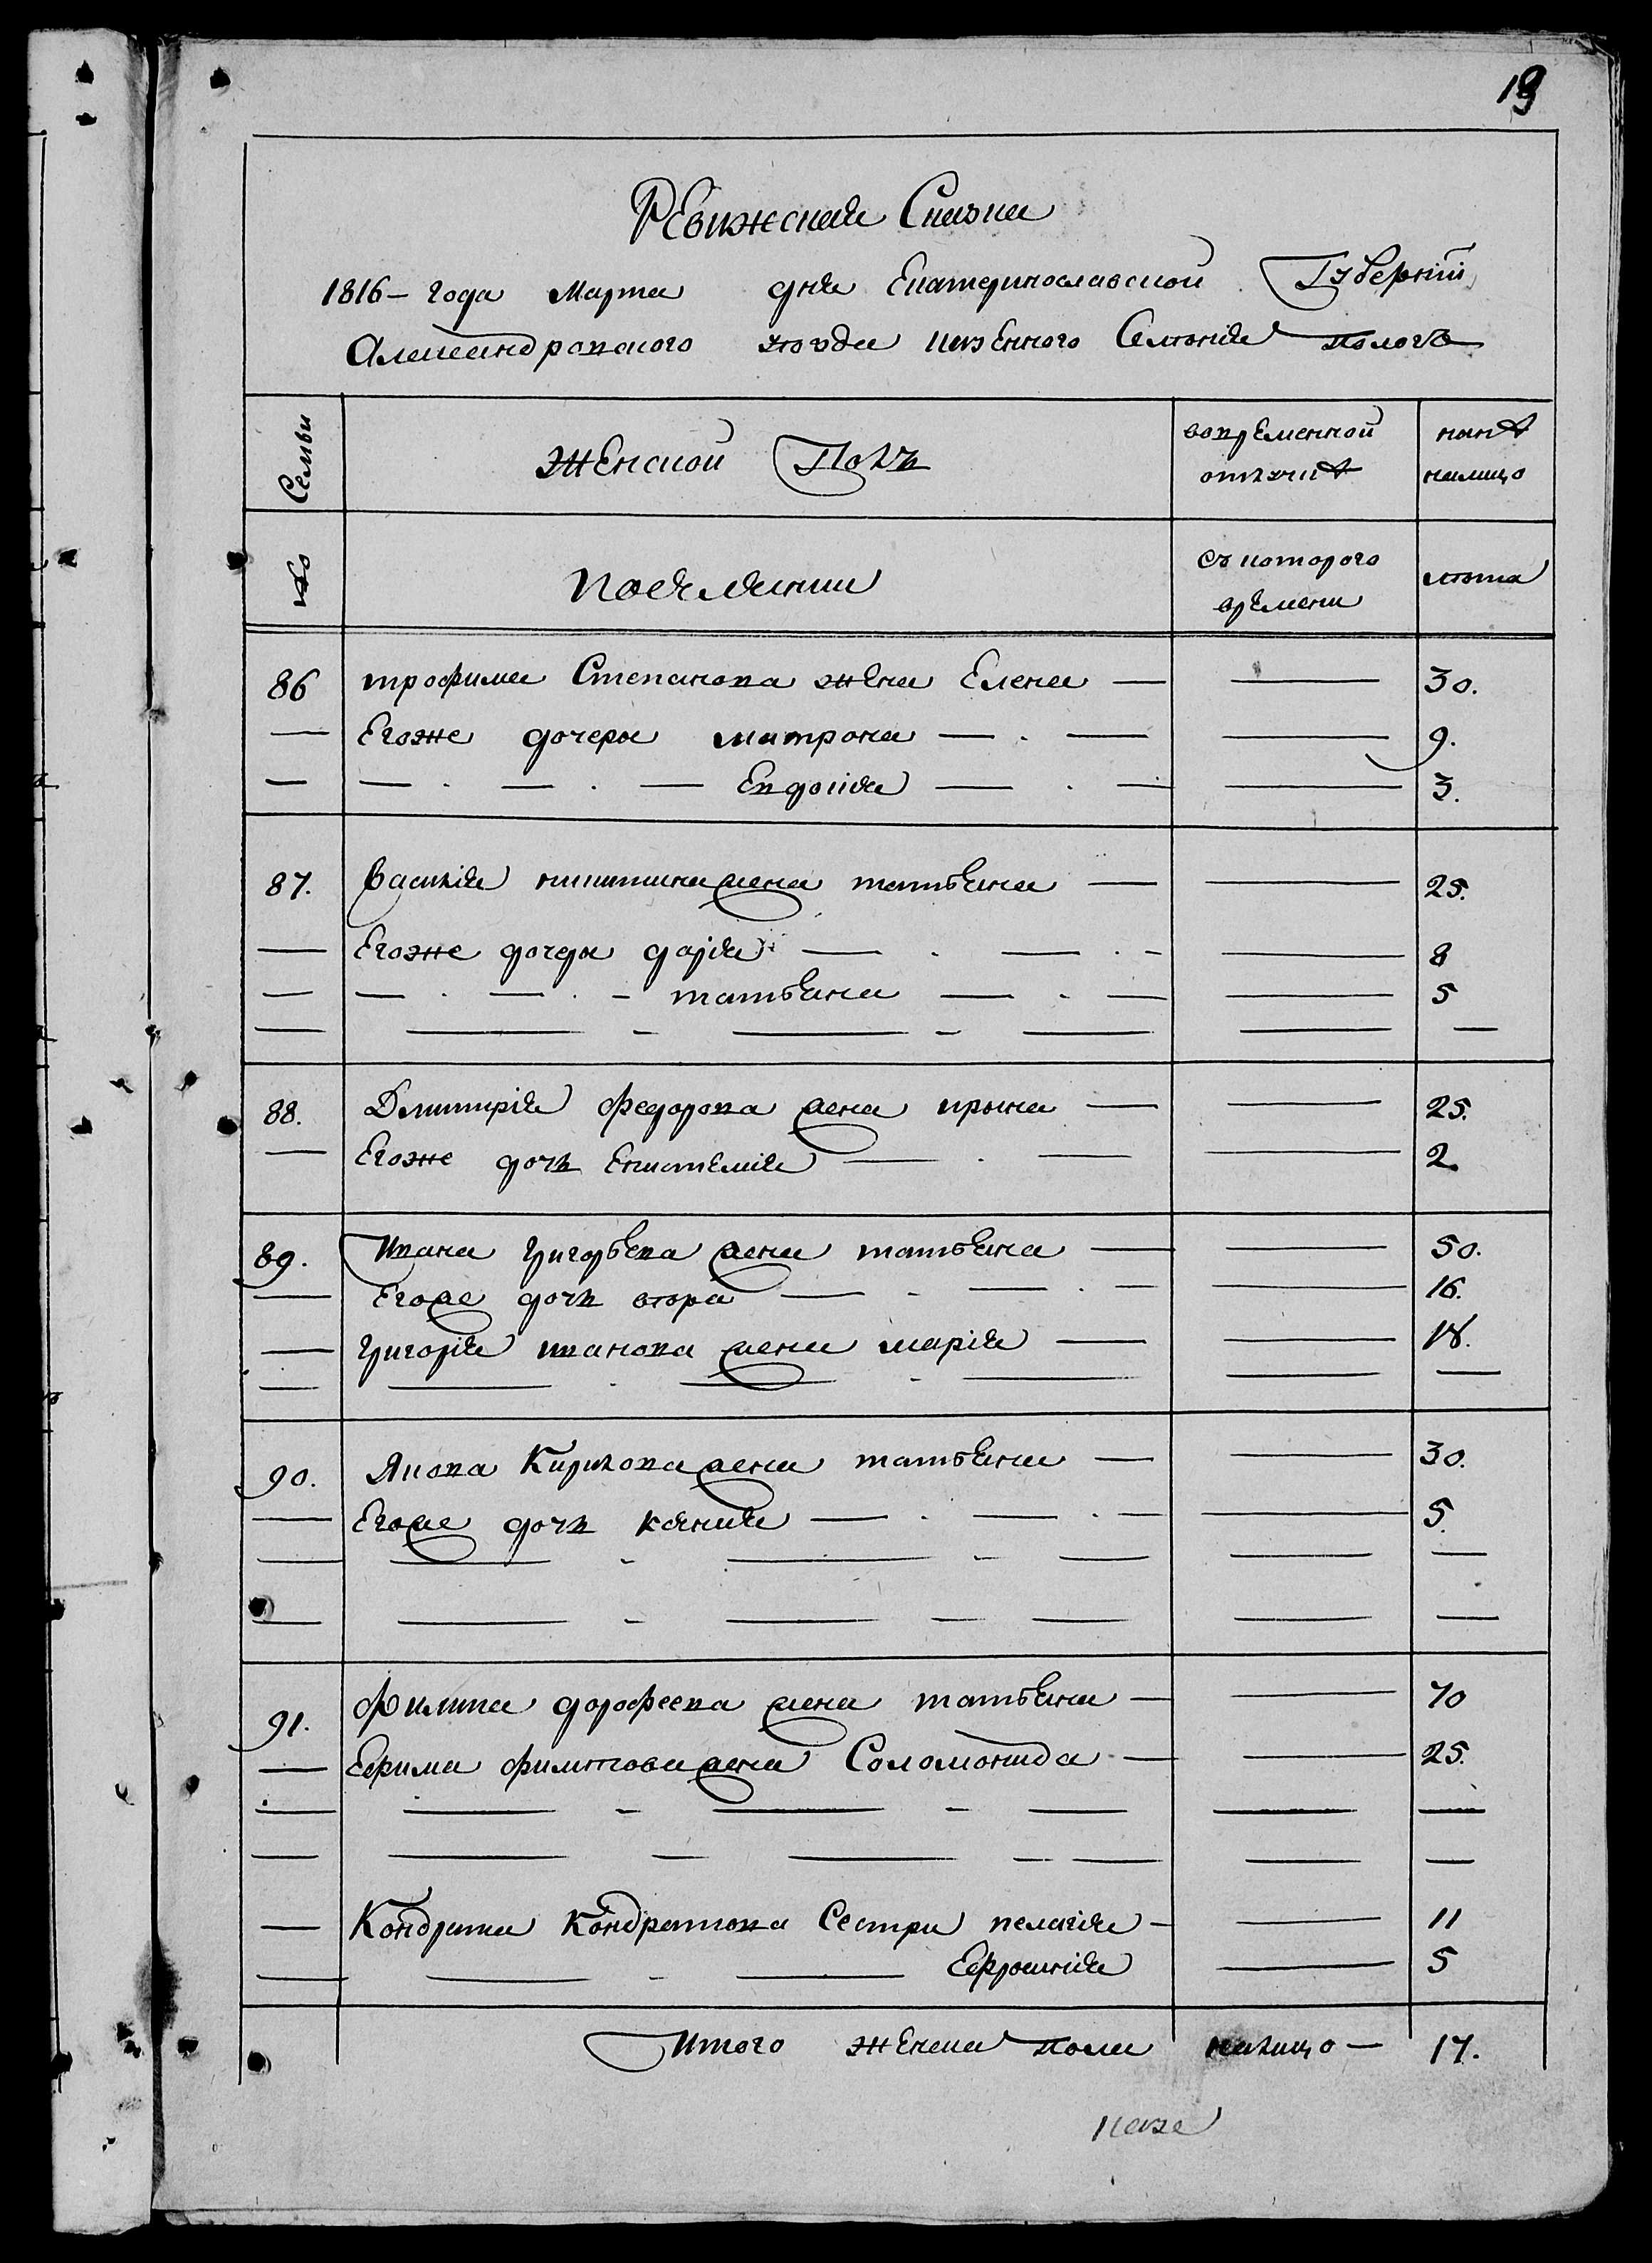 19
Ревижская Сказка
1816 – года Марта дня Екатеринославской Губерній
Александровского уезда казенного Селенія пологъ
Семьи Женской Полъ вовременной отлучкѣ нынѣ налицо
№ поселянки съ которого времени лѣта
86 трофима Степанова жена Елена — — 30.
— Егоже дочеры матрона — . — — 9.
— — . — . — Евдокія — . — — 3.
87. Василія никитина жена татьяна — — 25.
— Егоже дочеры дарія — . — . – — 8
— — . — . – татьяна — . — — 5
— — – — – — — —
88. Дмитрія федорова жена ирына — — 25.
— Егоже дочъ Евистемія — . — — 2.
89. Ивана григорьева жена татьяна — — 50.
— Егоже дочъ втора — . — . — — 16.
— григорія иванова жена марія — — 18.
— — . — . — — —
90. Якова Кирилова жена татьяна — — 30.
— Егоже дочъ ксенія — . — . — — 5.
— — – — – — — —
— — – — – — — —
91. филипа дорофеева жена татьяна — — 70
— Ефима филипова жена Соломонида — — 25.
— — – — – — — —
— — – — – — — —
— Кондрата Кондратова Сестры пелагія – — 11
— — – — Ефросинія — 5
Итого женска пола налицо — 17.